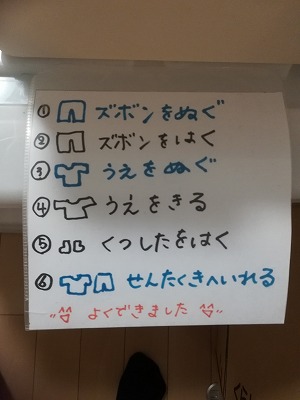 ① ズボンをぬぐ
② ズボンをはく
③ うえをぬぐ
④ うえをきる
⑤ くつしたをはく
⑥ せんたくきへいれる
よくできました